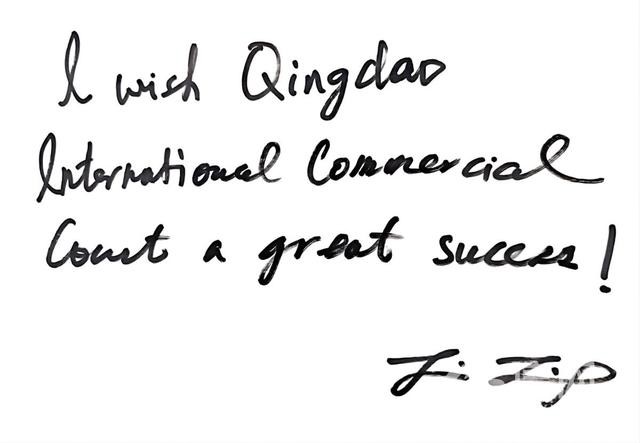 I wish Qingdao
International Commercial
Court a great success!
Li